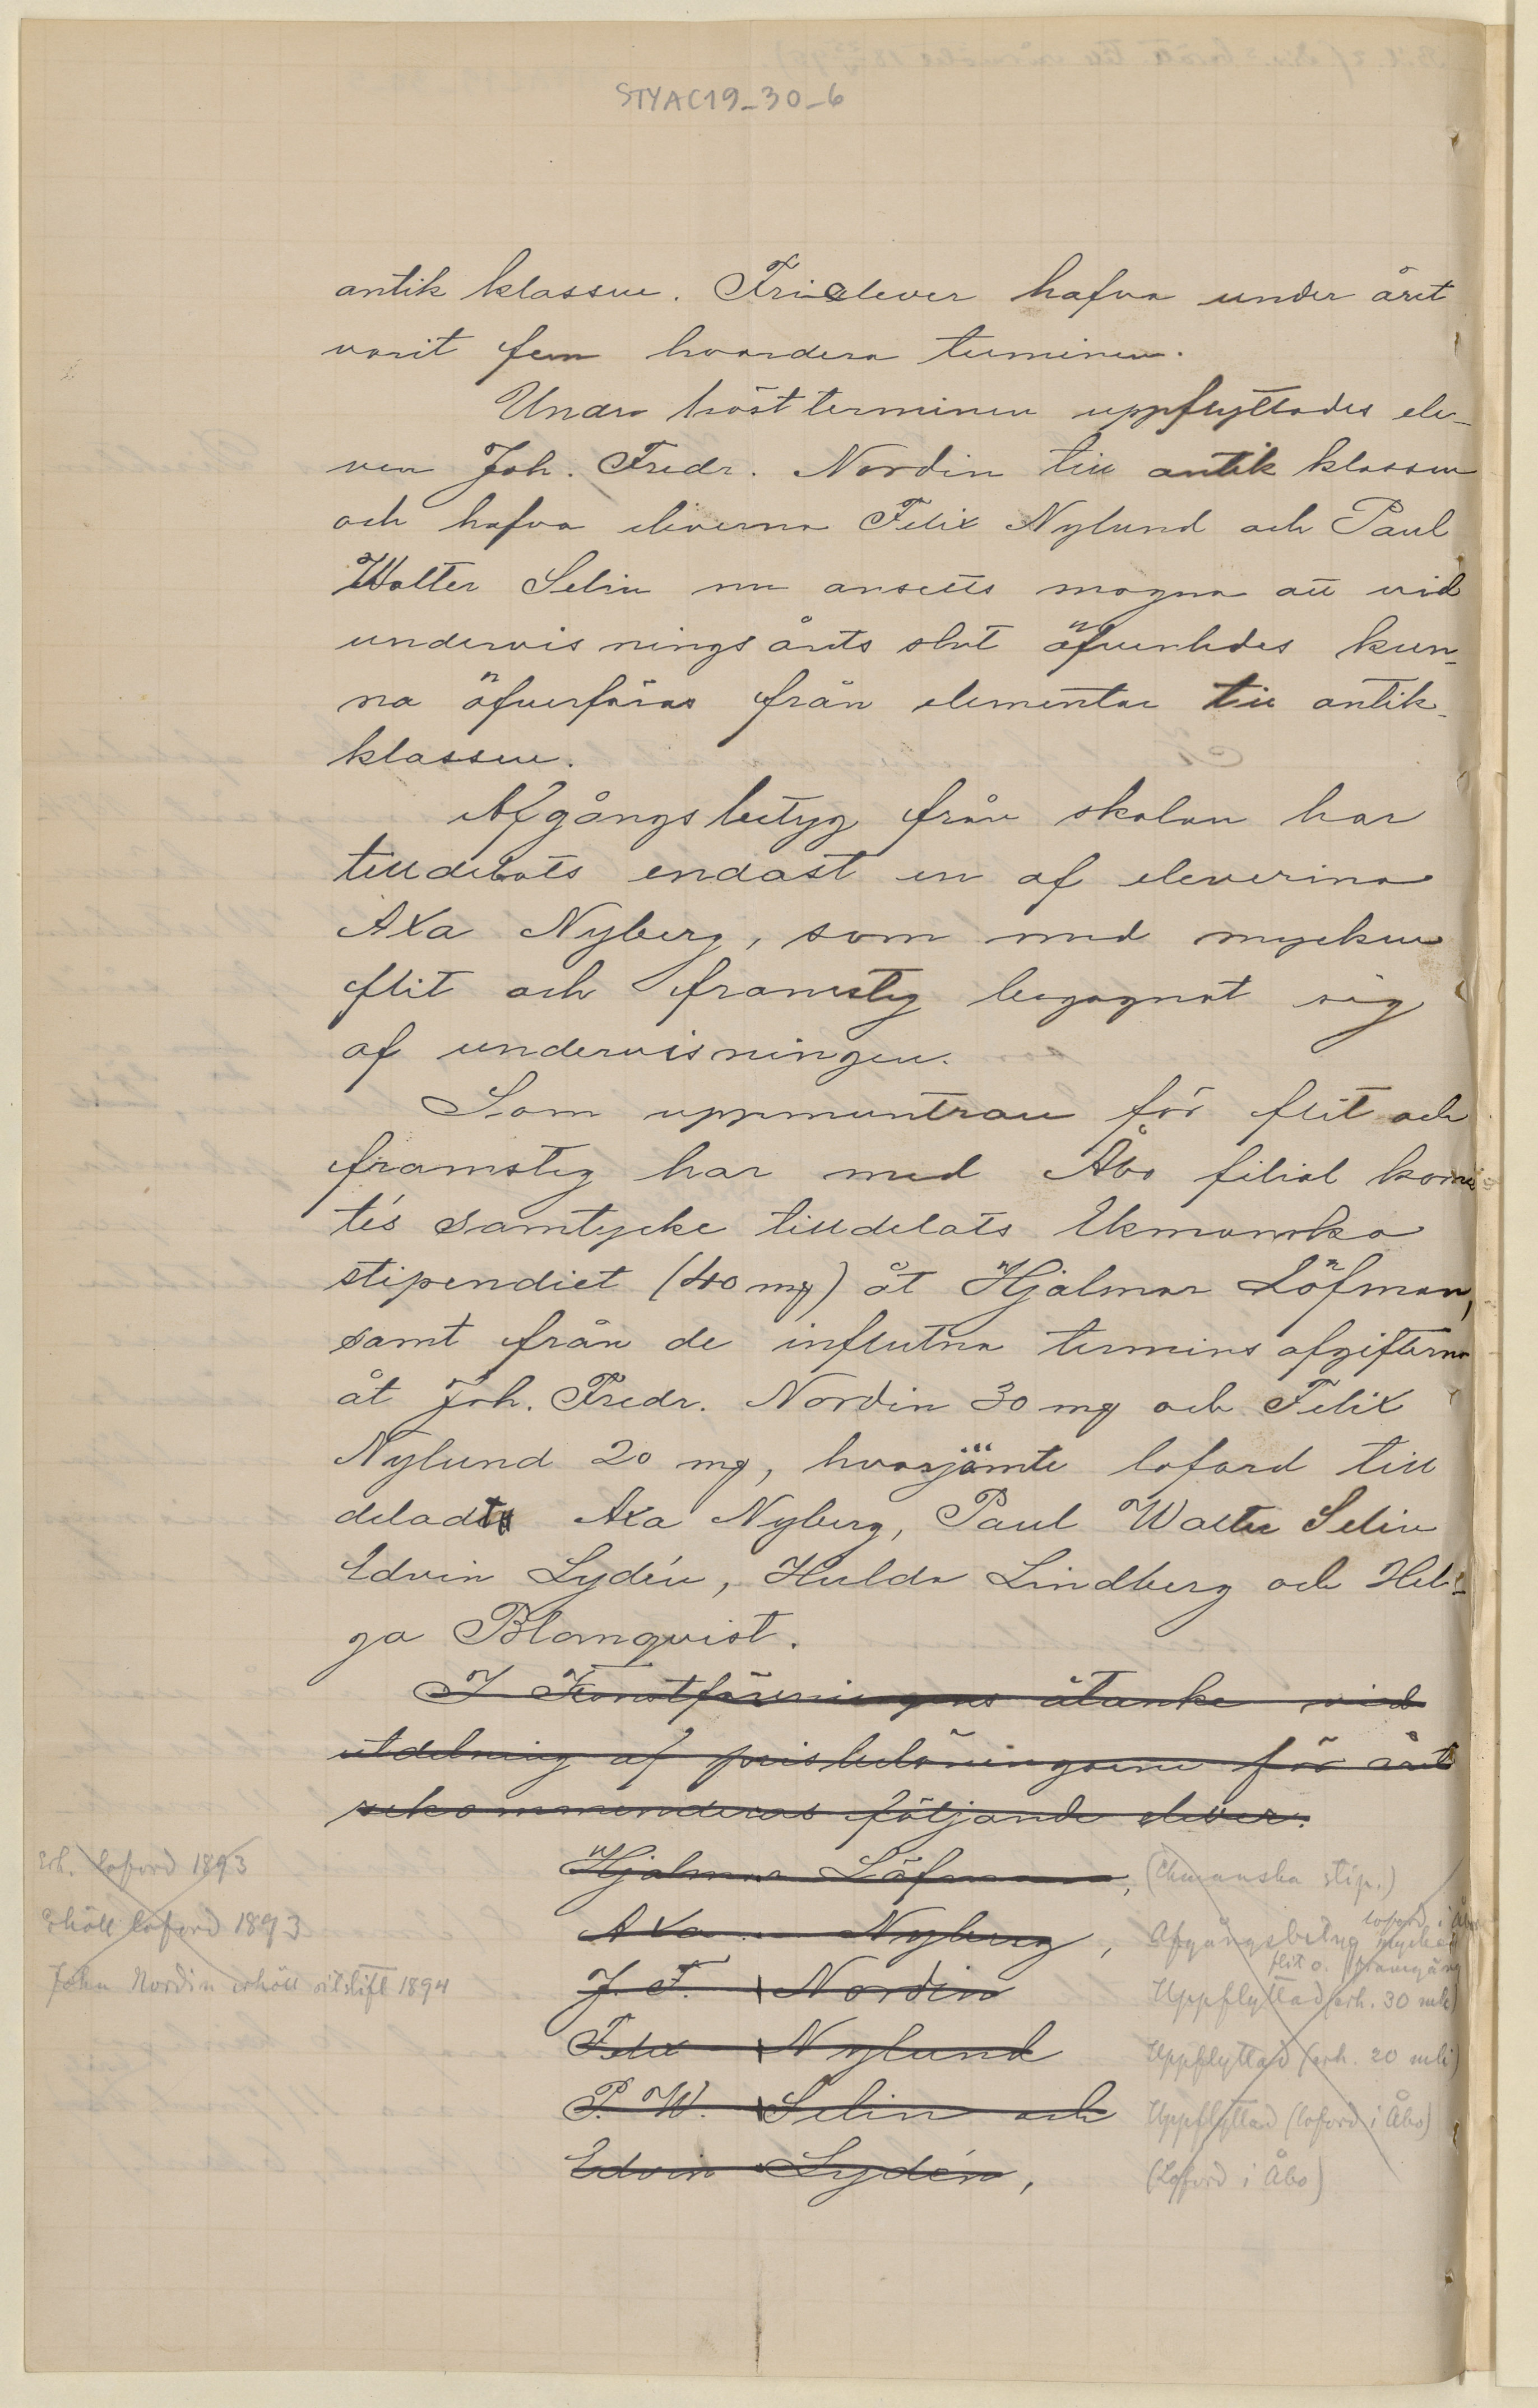 STYAC19_30_6
antik klassen. Frielever hafva under året
varit fem hvardera terminen.
Undra höstterminen uppflyttades ele-
ven Joh. Fredr. Nordin till antik klassen
och hafva eleverna Felix Nylund och Paul
Walter Selin nu ansetts mogna att vid
undervisningsårets slut äfvenledes kun-
na öfverföras från elementar till antik-
klassen.
Afgångsbetyg från skolan har
tilldelats endast en af eleverna
Axa Nyberg, som med mycken
flit och framsteg begagnat sig
af undervisningen.
Som uppmuntran för flit och
framsteg har med Åbo filial komi-
tés samtycke tilldelats Ekmanska
stipendiet (40 mg) åt Hjalmar Löfman,
samt från de influtna terminsafgifterna
åt Joh. Fredr. Nordin 30 mg och Felix
Nylund 20 mg, hvarjämte loford till
delats Axa Nyberg, Paul Walter Selin
Edvin Lydén, Hulda Lindberg och Hel-
ga Blomqvist.
I Konstföreningens åtanke vid
utdelning af prisbelöningarne för året
rekommenderas följande elever.
Erh. Loford 1893 Hjalmar Löfman, (Ekmanska stip.)
Erhöll loford 1893 Axa Nyberg, Afgångsbetyg mycken loford i Åbo
flit o. framgång
John Nordin erhöll ritstift 1894 J. F. Nordin Uppflyttad (erh. 30 mk)
Felix Nylund Uppflyttad (erh. 20 mk)
P. W. Selin och Uppflyttad (loford i Åbo)
Edvin Lydén, (Loford i Åbo)